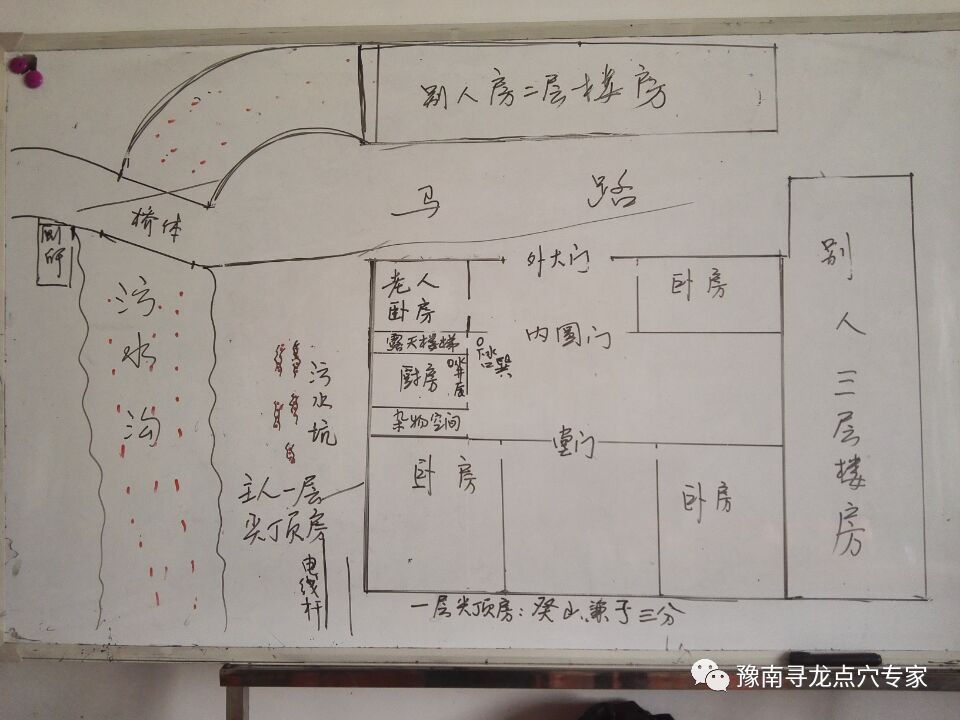 别人房二层楼房
马路
桥体
厕所
污水沟
污水坑
主人一层
尖顶房
电线杆
外大门
老人
卧房
卧房
露天楼梯
内圆门
厨房
下水口巽
杂物空间
堂门
卧房
卧房
别人三层楼房
一层尖顶房：癸山兼子三分
豫南寻龙点穴专家